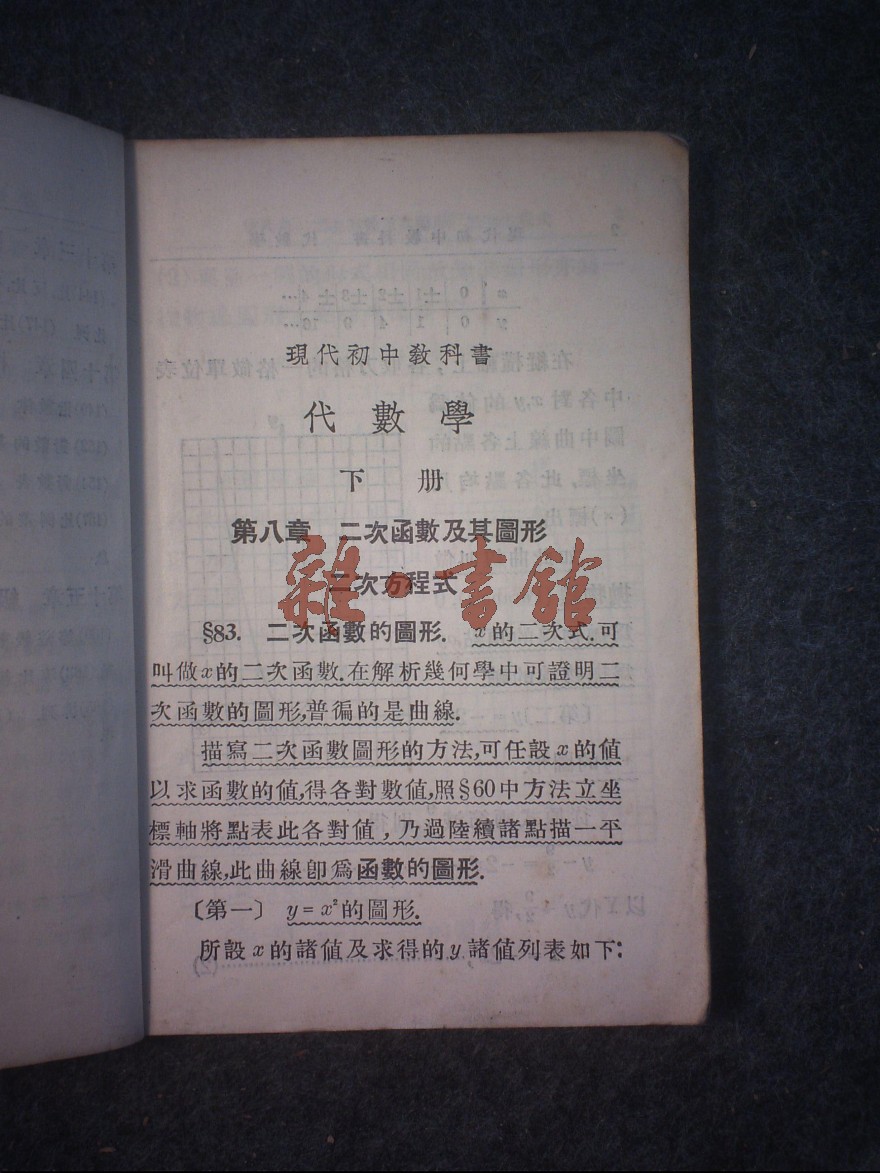 現代初中敎科書
代數學
下册
第八章 二次函數及其圖形
二次方程式
雜·書館
§83. 二次函數的圖形. x的二次式.可
叫做x的二次函數.在解析幾何學中可證明二
次函數的圖形,普徧的是曲線.
描寫二次函數圖形的方法,可任設x的値
以求函數的値,得各對數値,照§60中方法立坐
標軸將點表此各對値,乃過陸續諸點描一平
滑曲線,此曲線卽爲函數的圖形.
〔第一〕 y=x²的圖形.
所設x的諸値及求得的y諸値列表如下: